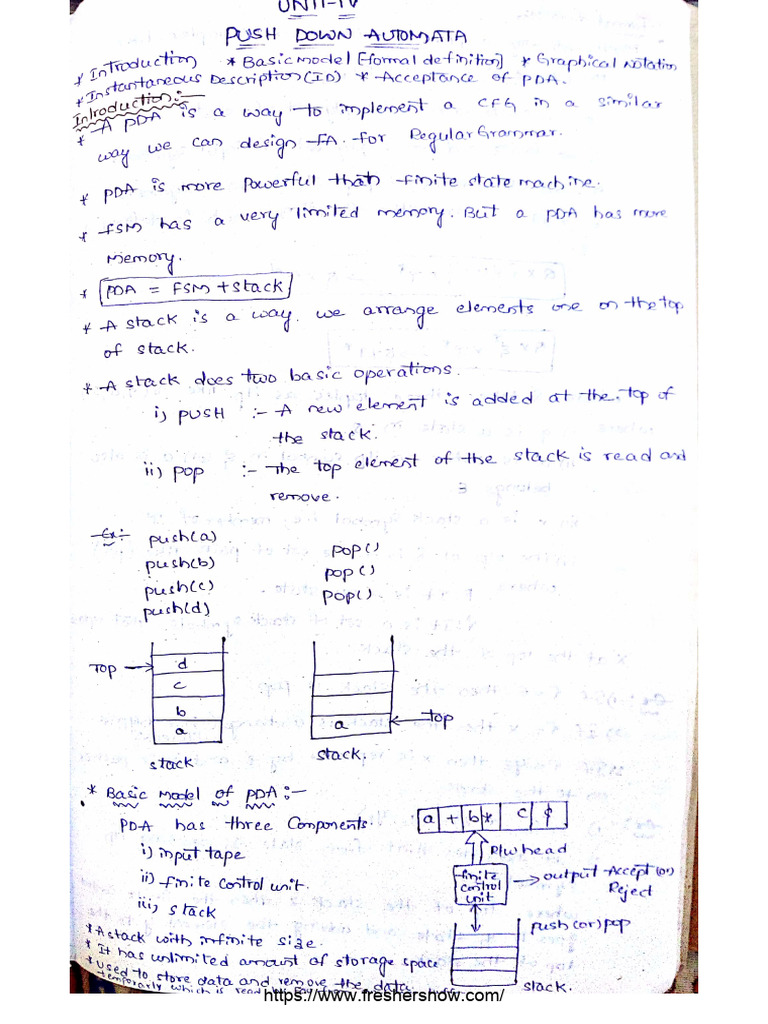 UNIT-IV
PUSH DOWN AUTOMATA
* Introduction * Basic model [formal definition] * Graphical Notation
* Instantaneous Description (ID) * Acceptance of PDA.
Introduction:-
* A PDA is a way to implement a CFG in a similar
way we can design FA for Regular Grammar.
* PDA is more powerful than finite state machine.
* FSM has a very limited memory. But a PDA has more
memory.
* PDA = FSM + Stack
* A stack is a way, we arrange elements one on the top
of stack.
* A stack does two basic operations.
i) PUSH :- A new element is added at the top of
the stack.
ii) POP :- The top element of the stack is read and
remove.
Ex:- push(a) pop()
push(b) pop()
push(c) pop()
push(d)
TOP → d
c
b
a a ← top
stack stack.
* Basic Model of PDA :-
PDA has three Components. a + b * c $
i) input tape R/w head
ii) finite control unit. finite control unit → output Accept (or) Reject
iii) stack push (or) pop
* A stack with infinite size.
* It has unlimited amount of storage space
* Used to store data and remove the data stack.
temporarly which is read
https://www.freshershow.com/